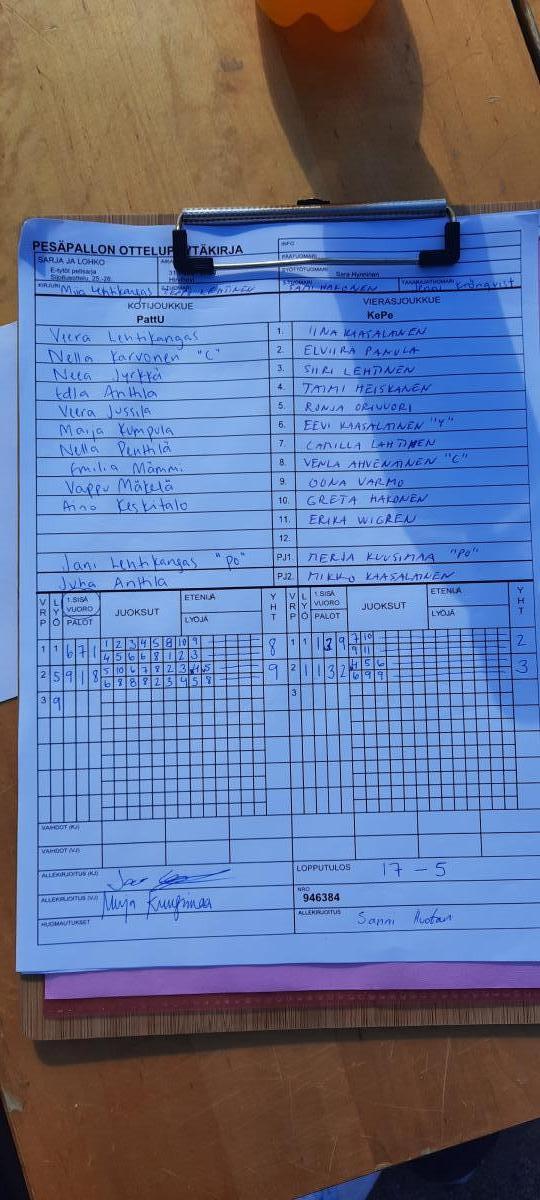 PESÄPALLON OTTELUPÖYTÄKIRJA
INFO
SARJA JA LOHKO
E-tytöt pelisarja
Sijoitusottelu 25.-26.
PÄÄTUOMARI
SYÖTTÖTUOMARI Sara Hynninen
KIRJURI Miia Lehtikangas
SAMI HAKONEN
TAKARAJATUOMARI
KOTIJOUKKUE VIERASJOUKKUE
PattU KePe
Veera Lehtikangas 1. IINA KAASALAINEN
Nella Karvonen "C" 2. ELVIIRA PANULA
Neea Jyrkkä 3. SIIRI LEHTINEN
Edla Anttila 4. TAIMI HEISKANEN
Veera Jussila 5. RONJA ORIVUORI
Maija Kumpula 6. EEVI KAASALAINEN "Y"
Nella Penttilä 7. CAMILLA LAHTINEN
Emilia Mämmi 8. VENLA AHVENAINEN "C"
Vappu Mäkelä 9. OONA VARMO
Aino Keskitalo 10. GRETA HAKONEN
11. ERIKA WIGREN
12.
Jani Lehtikangas "PO" PJ1. MERJA KUUSIMAA "PO"
Juha Anttila PJ2. MIKKO KAASALAINEN
VRP LYÖ 1.SISÄ VUORO PALOT JUOKSUT ETENIJÄ LYÖJÄ YHT VRP LYÖ 1.SISÄ VUORO PALOT JUOKSUT ETENIJÄ LYÖJÄ YHT
1 1 6 7 1 1 2 3 4 5 8 10 9 8 1 1 1 9 7 10 2
4 5 6 6 8 1 2 3 9 11
2 5 9 1 8 5 10 6 7 8 2 3 4 5 9 2 1 1 3 2 4 5 6 3
6 8 8 8 2 3 4 5 8 6 9 9
3 9 3
VAIHDOT (KJ)
VAIHDOT (VJ)
ALLEKIRJOITUS (KJ) LOPPUTULOS 17 - 5
ALLEKIRJOITUS (VJ) Merja Kuusimaa NRO
946384
HUOMAUTUKSET ALLEKIRJOITUS Sanni